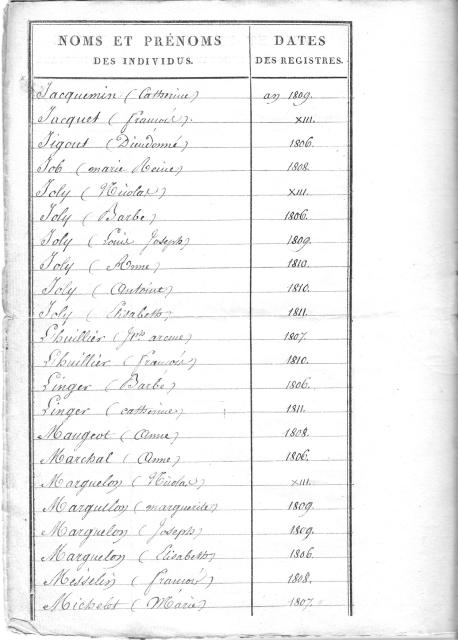 NOMS ET PRÉNOMS DATES
DES INDIVIDUS. DES REGISTRES.
Jacquemin (Catherine) an 1809.
Jacquet (François). XIII.
Jigout (Dieudonné) 1806.
Job (marie Reine) 1808.
Joly (Nicolas) XIII.
Joly (Barbe) 1806.
Joly (Louis Joseph) 1809.
Joly (Anne) 1810.
Joly (Antoine) 1810.
Joly (Elisabeth) 1811.
Lhuillier ( ) 1807.
Lhuillier (François) 1810.
Linger (Barbe) 1806.
Linger (catherine) 1811.
Maugeot (Anne) 1808.
Marchal (Anne) 1806.
Marguelon (Nicolas) XIII.
Marguelon (marguerite) 1809.
Marguelon (Joseph) 1809.
Marguelon (Elisabeth) 1806.
Messelin (françois) 1808.
Michelot (Marie) 1807.